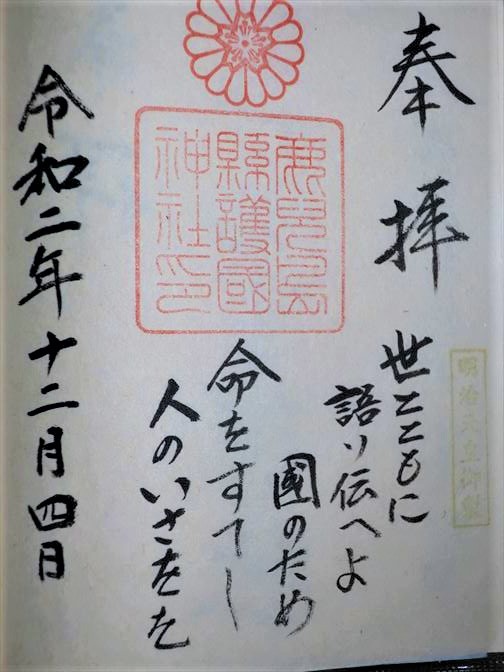 奉拝
明治天皇御製
世とともに
語り伝へよ
國のため
命をすてし
人のいさをを
鹿兒島
縣護國
神社印
令和二年十二月四日